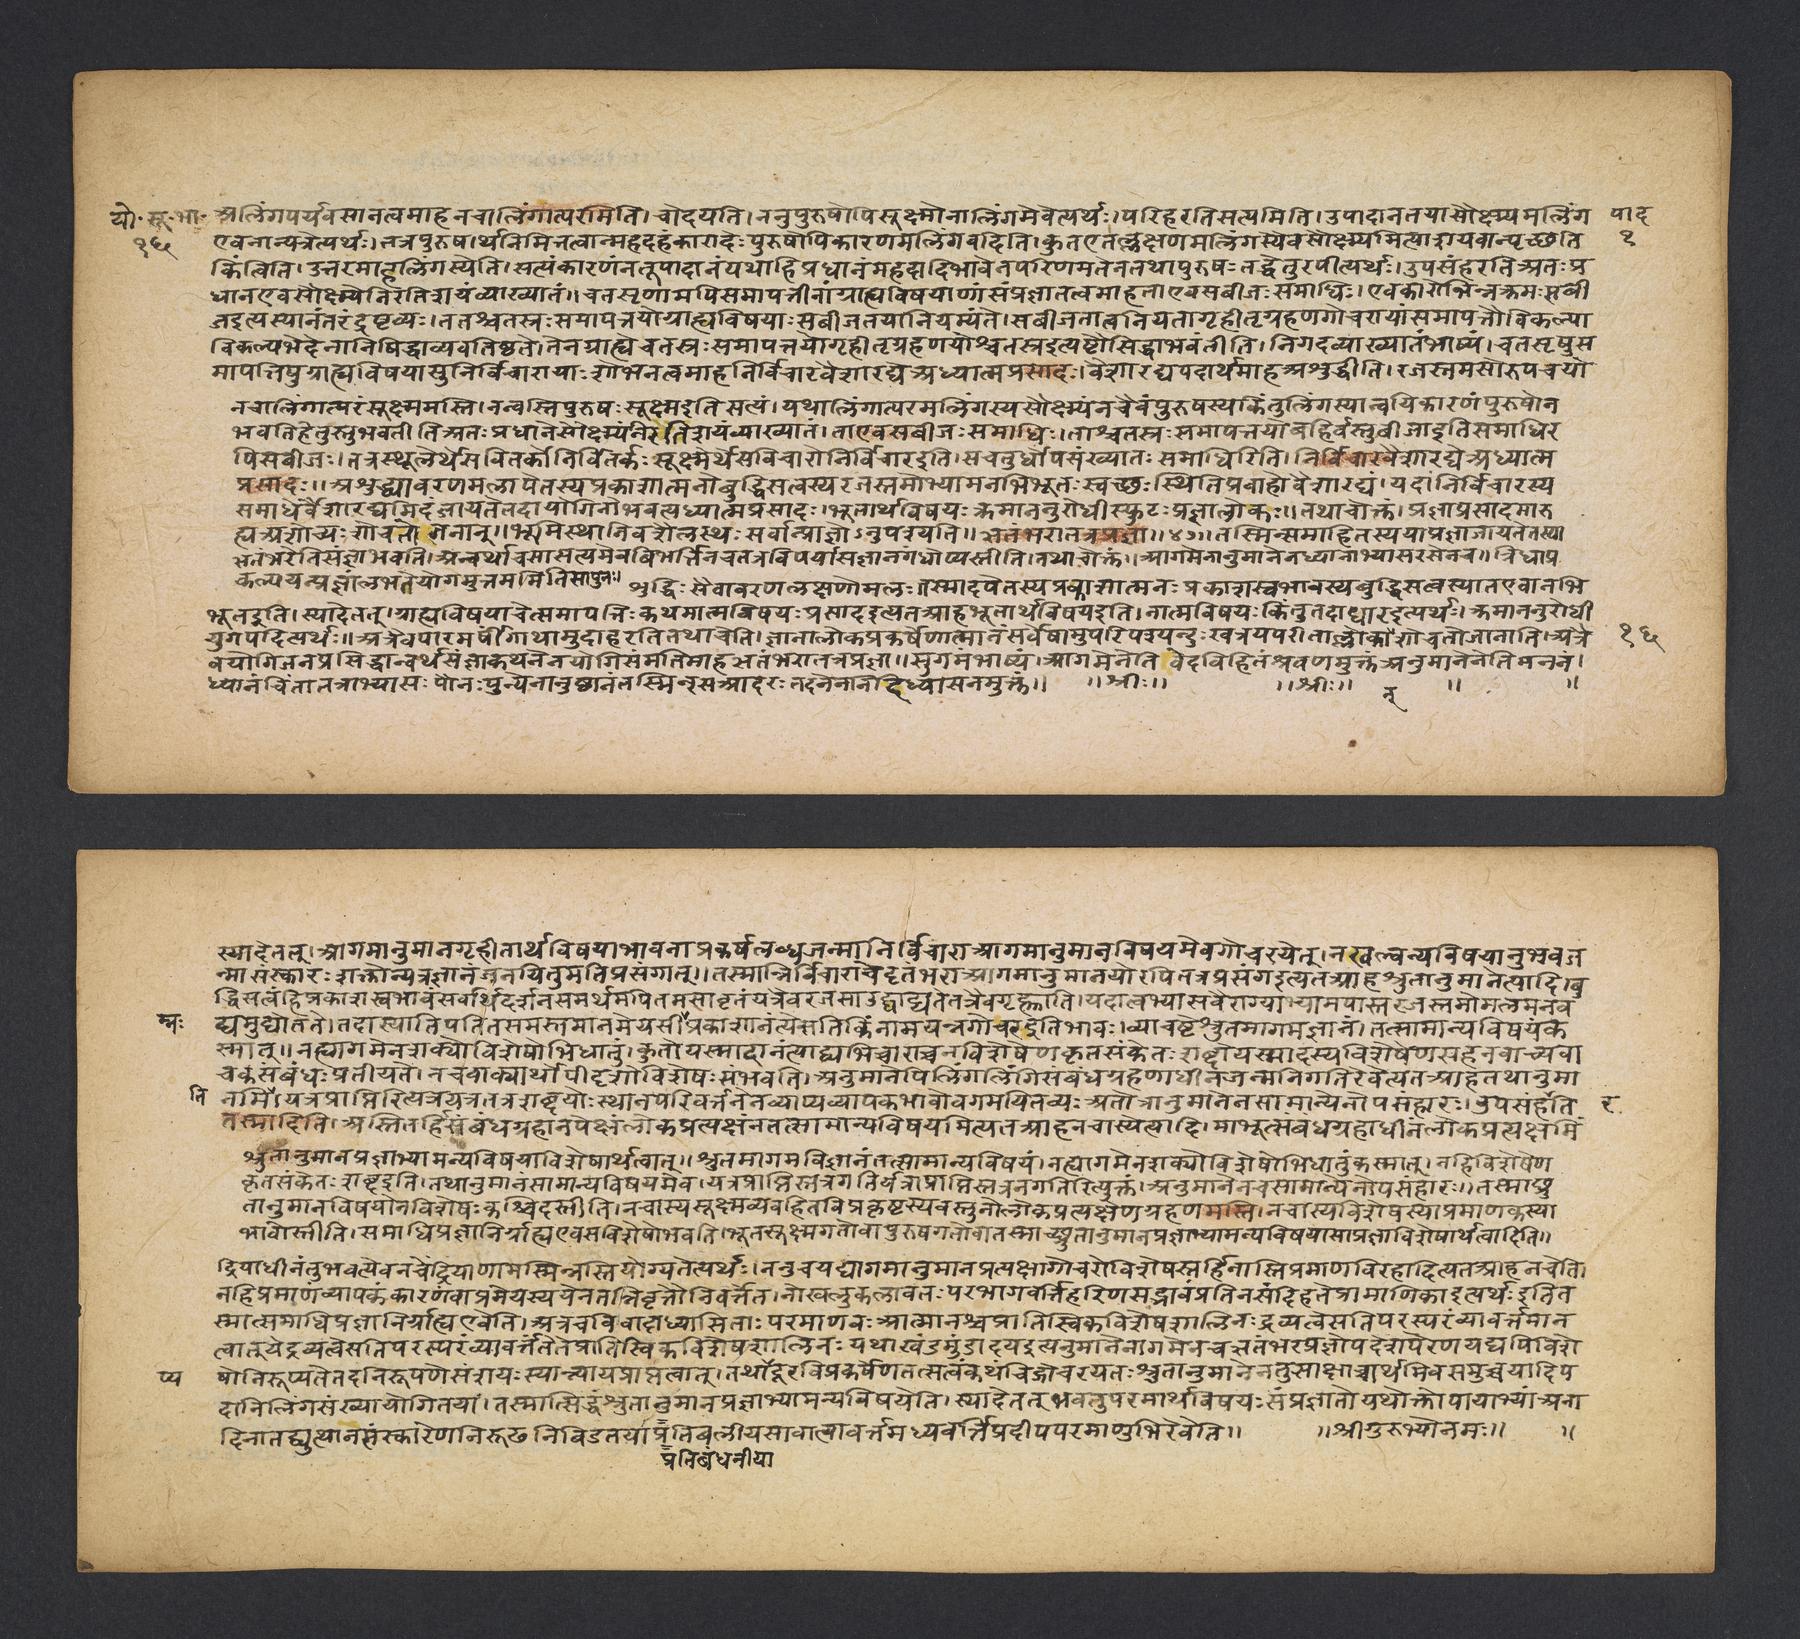 यो॰ सू॰ भा॰ अलिंगपर्यवसानत्वमाह नचालिंगात्परमिति। चोदयति। ननुपुरुषोपिसूक्ष्मोनालिंगमेवेत्यर्थः। परिहरतिसत्यमिति। उपादानतयासौक्ष्म्यमलिंग पाद
१६ एवनान्यत्रेत्यर्थः। तत्रपुरुषार्थनिमित्तत्वान्महदहंकारादेः पुरुषोपिकारणमलिंगवदिति। कुतएतल्लक्षणमलिंगस्यैवसौक्ष्म्यमित्याशयवान्पृच्छति १
किंत्विति। उत्तरमाहलिंगस्येति। सत्यंकारणंनतूपादानंयथाहिप्रधानंमहदादिभावेनपरिणमतेनतथापुरुषः तद्धेतुरपीत्यर्थः। उपसंहरतिअतः प्र
धानएवसौक्ष्म्यंनिरतिशयंव्याख्यातं॥ चतसृणामपिसमापत्तीनांग्राह्यविषयाणांसंप्रज्ञातत्वमाहताएवसबीजः समाधिः। एवकारोभिन्नक्रमः सबी
जइत्यस्यानंतरंद्रष्टव्यः। ततश्चतस्रः समापत्तयोग्राह्यविषयाः सबीजतयानियम्यंते। सबीजतात्वनियतागृहीतृग्रहणगोचरायांसमापत्तौविकल्पा
विकल्पभेदेनानिषिद्धाव्यवतिष्ठते। तेनग्राह्येचतस्रः समापत्तयोगृहीतृग्रहणयोश्चतस्रइत्यष्टौसिद्धाभवंतीति। निगदव्याख्यातंभाष्यं। चतसृषुस
मापत्तिषुग्राह्यविषयासुनिर्विचारायाः शोभनत्वमाहनिर्विचारवैशारद्येअध्यात्मप्रसादः। वैशारद्यपदार्थमाहअशुद्धीति। रजस्तमसोरुपचयो
नचालिंगात्परंसूक्ष्ममस्ति। नन्वस्तिपुरुषः सूक्ष्मइतिसत्यं। यथालिंगात्परमलिंगस्यसौक्ष्म्यंनचैवंपुरुषस्यकिंतुलिंगस्यान्वयिकारणंपुरुषोन
भवतिहेतुस्तुभवतीतिअतः प्रधानेसौक्ष्म्यंनिरतिशयंव्याख्यातं। ताएवसबीजः समाधिः। ताश्चतस्रः समापत्तयोबहिर्वस्तुबीजाइतिसमाधिर
पिसबीजः। तत्रस्थूलेर्थेसवितर्कोनिर्वितर्कः सूक्ष्मेर्थेसविचारोनिर्विचारइति। सचतुर्धोपसंख्यातः समाधिरिति। निर्विचारवैशारद्येअध्यात्म
प्रसादः॥ अशुद्ध्यावरणमलापेतस्यप्रकाशात्मनोबुद्धिसत्वस्यरजस्तमोभ्यामनभिभूतः स्वच्छः स्थितिप्रवाहोवैशारद्यं। यदानिर्विचारस्य
समाधेर्वैशारद्यमिदंजायतेतदायोगिनोभवत्यध्यात्मप्रसादः। भूतार्थविषयः क्रमाननुरोधीस्फुटः प्रज्ञालोकः॥ तथाचोक्तं। प्रज्ञाप्रसादमारु
ह्यअशोच्यः शोचतोजनान्॥ भूमिस्थानिवशैलस्थः सर्वान्प्राज्ञोऽनुपश्यति॥ ऋतंभरातत्रप्रज्ञा॥४७॥ तस्मिन्समाहितस्ययाप्रज्ञाजायतेतस्या
ऋतंभरेतिसंज्ञाभवति। अन्वर्थाचसासत्यमेवबिभर्त्तिनचतत्रविपर्यासज्ञानगंधोप्यस्तीति। तथाचोक्तं। आगमेनानुमानेनध्यानाभ्यासरसेनच॥ त्रिधाप्र
कल्पयन्प्रज्ञांलभतेयोगमुत्तममिति सापुनः॥ शुद्धिः सैवावरणलक्षणोमलः॥ तस्मादपेतस्यप्रकाशात्मनः प्रकाशस्वभावस्यबुद्धिसत्वस्यातएवानभि
भूतइति। स्यादेतत्। ग्राह्यविषयाचेत्समापत्तिः कथमात्मविषयः प्रसादइत्यतआहभूतार्थविषयइति। नात्मविषयः किंतुतदाधारइत्यर्थः। क्रमाननुरोधी
युगपदित्यर्थः॥ अत्रैवपारमर्षींगाथामुदाहरतितथाचेति। ज्ञानालोकप्रकर्षेणात्मानंसर्वेषामुपरिपश्यन्दुःखत्रयपरीतान्लोकान्शोचतोजानाति। अत्रै १६
वयोगिजनप्रसिद्धान्वर्थसंज्ञाकथनेनयोगिसंमतिमाहऋतंभरातत्रप्रज्ञा॥ सुगमंभाष्यं। आगमेनेति वेदविहितंश्रवणमुक्तंअनुमानेनेतिमननं।
ध्यानंचिंतातत्राभ्यासः पौनःपुन्येनानुष्ठानंतस्मिन्रसआदरः तदनेननिदिध्यासनमुक्तं॥ ॥श्रीः॥ ॥श्रीः॥ ॥ ॥
स्यादेतत्। आगमानुमानगृहीतार्थविषयाभावनाप्रकर्षलब्धजन्मानिर्विचाराआगमानुमानविषयमेवगोचरयेत्। नखल्वन्यविषयानुभवज
न्मासंस्कारः शक्तोन्यत्रज्ञानंजनयितुमतिप्रसंगात्॥ तस्मान्निर्विचाराचेदृतंभराआगमानुमानयोरपितत्रप्रसंगइत्यतआहश्रुतानुमानेत्यादि। बु
द्धिसत्वंहिप्रकाशस्वभावंसर्वार्थदर्शनसमर्थमपितमसावृतंयत्रैवरजसाउद्घाट्यतेतत्रैवगृह्णाति। यदात्वभ्यासवैराग्याभ्यामपास्तरजस्तमोमलमनव
द्यमुद्योतते। तदास्यातिपतितसमस्तमानमेयसीम्नः प्रकाशानंत्येसतिकिंनामयन्नगोचरइतिभावः। व्याचष्टेश्रुतमागमज्ञानं। तत्सामान्यविषयंक
स्मात्॥ नह्यागमेनशक्योविशेषोभिधातुं। कुतोयस्मादानंत्याद्व्यभिचाराच्चनविशेषेणकृतसंकेतः शब्दोयस्मादस्यविशेषेणसहनवाच्यवा
चकसंबंधः प्रतीयते। नचवाक्यार्थोपीदृशोविशेषः संभवति। अनुमानेपिलिंगलिंगिसंबंधग्रहणाधीनजन्मनिगतिरेवेत्यतआहतथानुमा
नमिति। यत्रप्राप्तिरित्यत्रयत्रतत्रशब्दयोः स्थानपरिवर्त्तनेनव्याप्यव्यापकभावोवगमयितव्यः अतोत्रानुमानेनसामान्येनोपसंहारः। उपसंहरति
तस्मादिति। अस्तितर्हिसंबंधग्रहानपेक्षंलोकप्रत्यक्षंनतत्सामान्यविषयमित्यतआहनचास्येत्यादि। माभूत्संबंधग्रहाधीनंलोकप्रत्यक्षमिं
श्रुतानुमानप्रज्ञाभ्यामन्यविषयाविशेषार्थत्वात्॥ श्रुतमागमविज्ञानंतत्सामान्यविषयं। नह्यागमेनशक्योविशेषोभिधातुंकस्मात्। नहिविशेषेण
कृतसंकेतः शब्दइति। तथानुमानंसामान्यविषयमेव। यत्रप्राप्तिस्तत्रगतिर्यत्राप्राप्तिस्तत्रनगतिरित्युक्तं। अनुमानेनचसामान्येनोपसंहारः॥ तस्माच्छ्रु
तानुमानविषयोनविशेषः कश्चिदस्तीति। नचास्यसूक्ष्मव्यवहितविप्रकृष्टस्यवस्तुनोलोकप्रत्यक्षेणग्रहणमस्ति। नचास्यविशेषस्याप्रमाणकस्या
भावोस्तीति। समाधिप्रज्ञानिर्ग्राह्यएवसविशेषोभवति। भूतसूक्ष्मगतोवापुरुषगतोवातस्माच्छ्रुतानुमानप्रज्ञाभ्यामन्यविषयासाप्रज्ञाविशेषार्थत्वादिति॥
द्रियाधीनंतुभवत्येवनचेंद्रियाणामस्मिन्नस्तियोग्यतेत्यर्थः। ननुचयद्यागमानुमानप्रत्यक्षागोचरोविशेषस्तर्हिनास्तिप्रमाणविरहादित्यतआहनचेति।
नहिप्रमाणंव्यापकंकारणंवाप्रमेयस्ययेनतन्निवृत्तौनिवर्त्तेत। नोखलुकलावतः परभागवर्त्तिहरिणसद्भावंप्रतिनसंदिहतेप्रामाणिकाइत्यर्थः इतित
स्मात्समाधिप्रज्ञानिर्ग्राह्यएवेति। अत्रचविवादाध्यासिताः परमाणवः आत्मानश्चप्रातिस्विकविशेषशालिनः द्रव्यत्वेसतिपरस्परंव्यावर्त्तमान
त्वात्येद्रव्यत्वेसतिपरस्परंव्यावर्त्तंतेतेप्रातिस्विकविशेषशालिनः यथाखंडमुंडादयइत्यनुमानेनागमेनचऋतंभरप्रज्ञोपदेशपरेणयद्यपिविशे
षोनिरूप्यतेतदनिरूपणेसंशयः स्यान्न्यायप्राप्तत्वात्। तथाप्यदूरविप्रकर्षेणतत्सत्वंकथंचिद्गोचरयतः श्रुतानुमानेनतुसाक्षाच्चार्थमिवसमुच्चयादिप
दानिलिंगसंख्यायोगितया। तस्मात्सिद्धंश्रुतानुमानप्रज्ञाभ्यामन्यविषयेति। स्यादेतत् भवतुपरमार्थविषयः संप्रज्ञातोयथोक्तोपायाभ्यांअना
दिनातुव्युत्थानसंस्कारेणनिरूढनिबिडतयाप्रतिबलीयसावात्यावर्त्तमध्यवर्त्तिप्रदीपपरमाणुभिरेवेति॥ ॥श्रीगुरुभ्योनमः॥ ॥
प्रतिबंधनीया